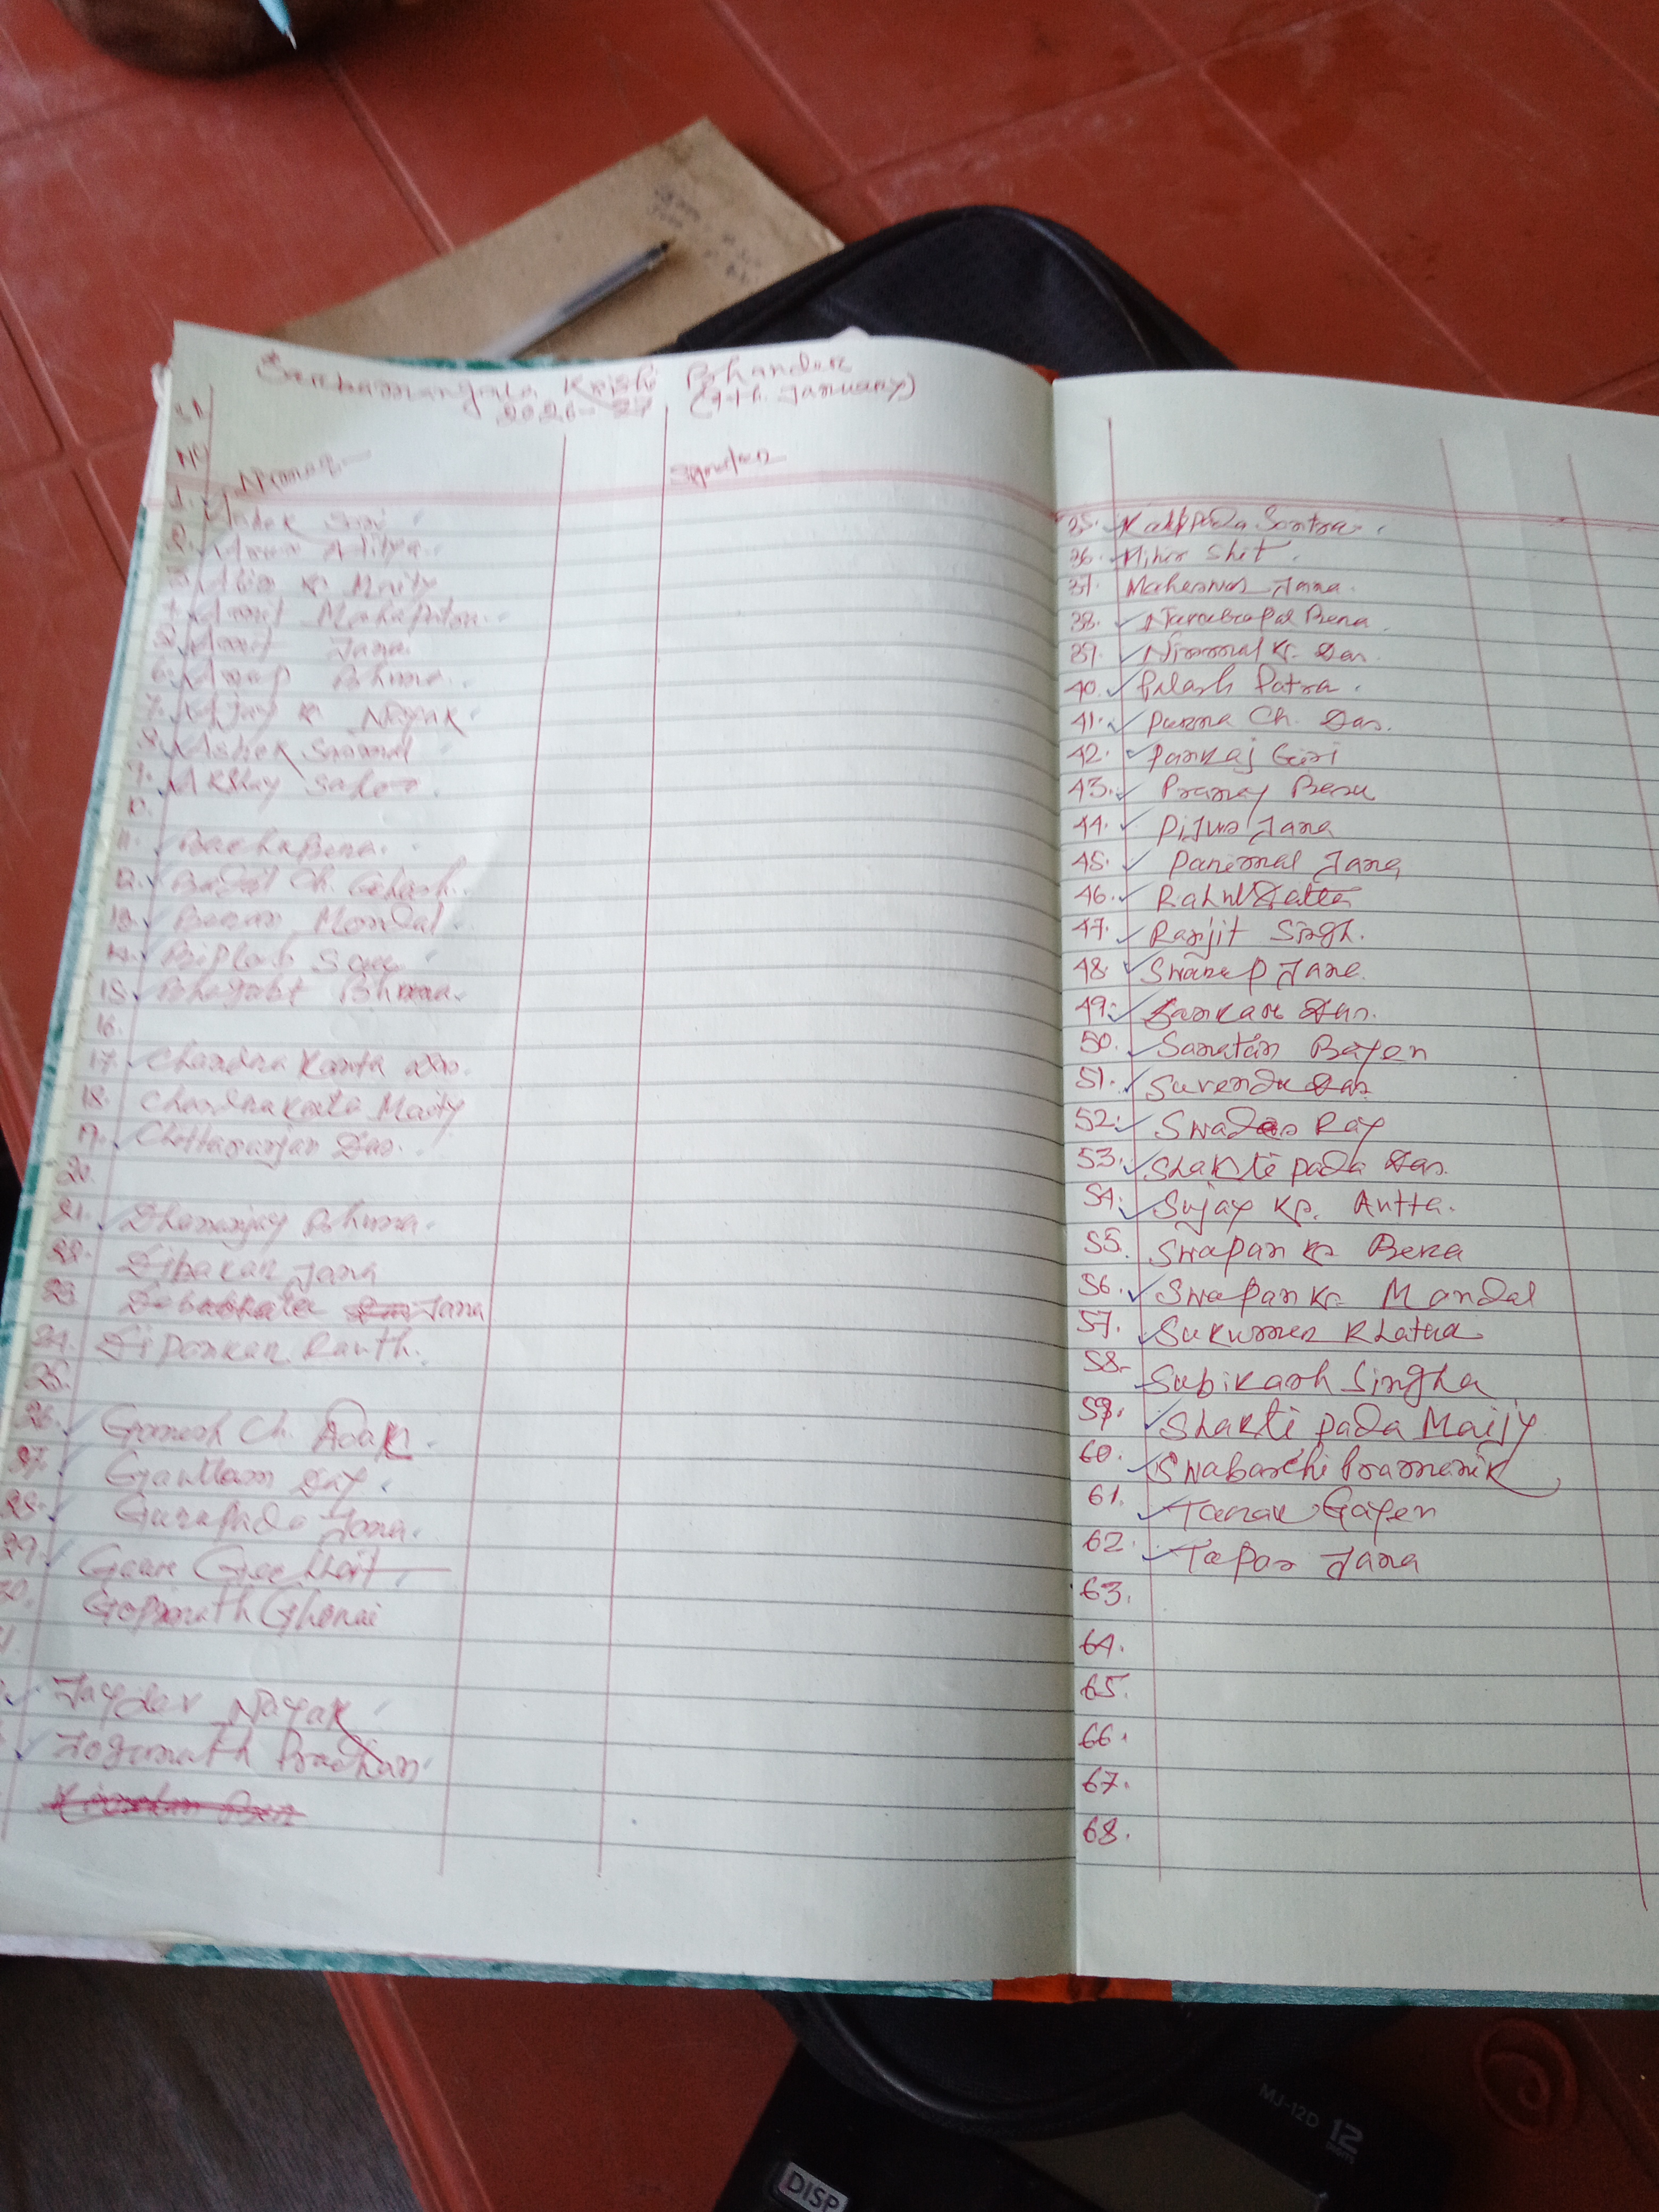 Sarbamangala Krishi Bhandar
2026-27 (9th. January)
Sl
NO Names Signature
1. Ashok Giri
2. Arun Aditya
3. Abir Kr Maity
4. Amit Mahapatra
5. Amit Jana
6. Anup Bhunia
7. Ajay Kr Nayak
8. Ashok Samanta
9. Akshay Sahoo
10.
11. Bacha Bera
12. Badal Ch. Ghosh
13. Mondal
14. Biplab
15. Bhunia
16.
17. Chandra Kanta Das
18. Chandrakanta Maity
19. Chittaranjan Das
20.
21. Dhananjay Bhunia
22. Dibakar Jana
23. Debabrata Jana
24. Dipankar Routh
25.
26. Ganesh Ch. Adak
27. Gautam Dey
28. Gurupada Jana
29.
30. Gopinath Ghorai
Jaydev Nayak
Jogunath Pradhan
35. Kalipada Santra
36. Mihir Shit
37. Maheswar Jana
38. Bera
39. Nirmal Kr. Das
40. Palash Patra
41. Purna Ch. Das.
42. Pankaj Giri
43. Pranay Bera
44. Pijus Jana
45. Parimal Jana
46. Rahul Datta
47. Ranjit Singh.
48. Swarup Jana
49. Sankar Das.
50. Sanatan Bayen
51. Surendu Das
52. Swades Ray
53. Shakti pada Das.
54. Sujay Kr. Autta.
55. Swapan Kr Bera
56. Swapan Kr Mandal
57. Sukumar Khatua
58. Subikash Singha
59. Shakti pada Maity
60. Pramanik
61. Tarak Gayen
62. Tapas Jana
63.
64.
65.
66.
67.
68.
MJ-12D 12
DIGITS
DISP